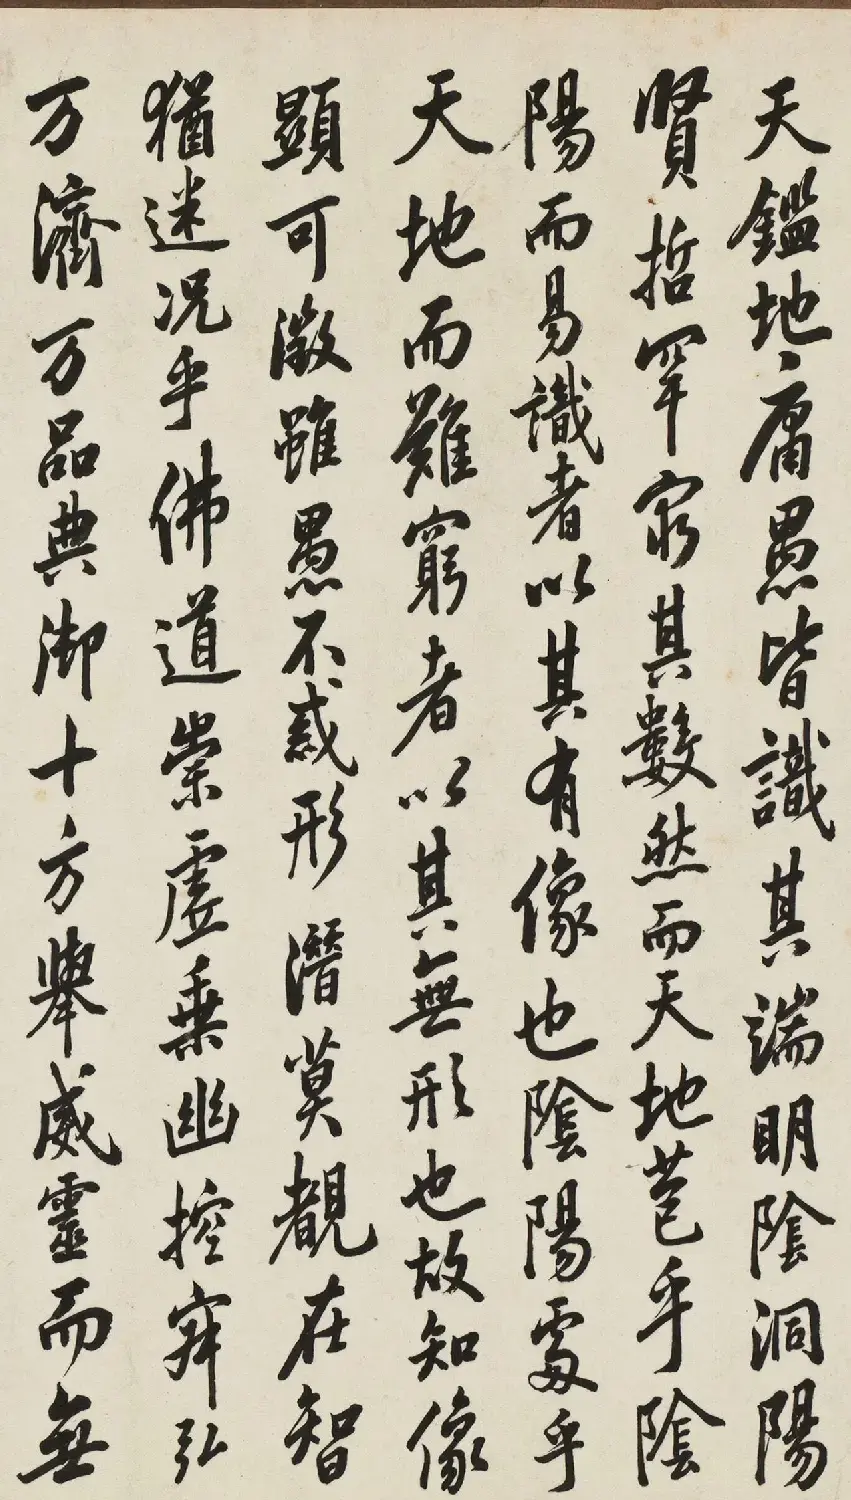 天鑑地庸愚皆識其端明陰洞陽
賢哲罕窮其數然而天地苞乎陰
陽而易識者以其有像也陰陽處乎
天地而難窮者以其無形也故知像
顯可徵雖愚不惑形潛莫覩在智
猶迷况乎佛道崇虛乗幽控寂弘
万濟万品典御十方舉威靈而無